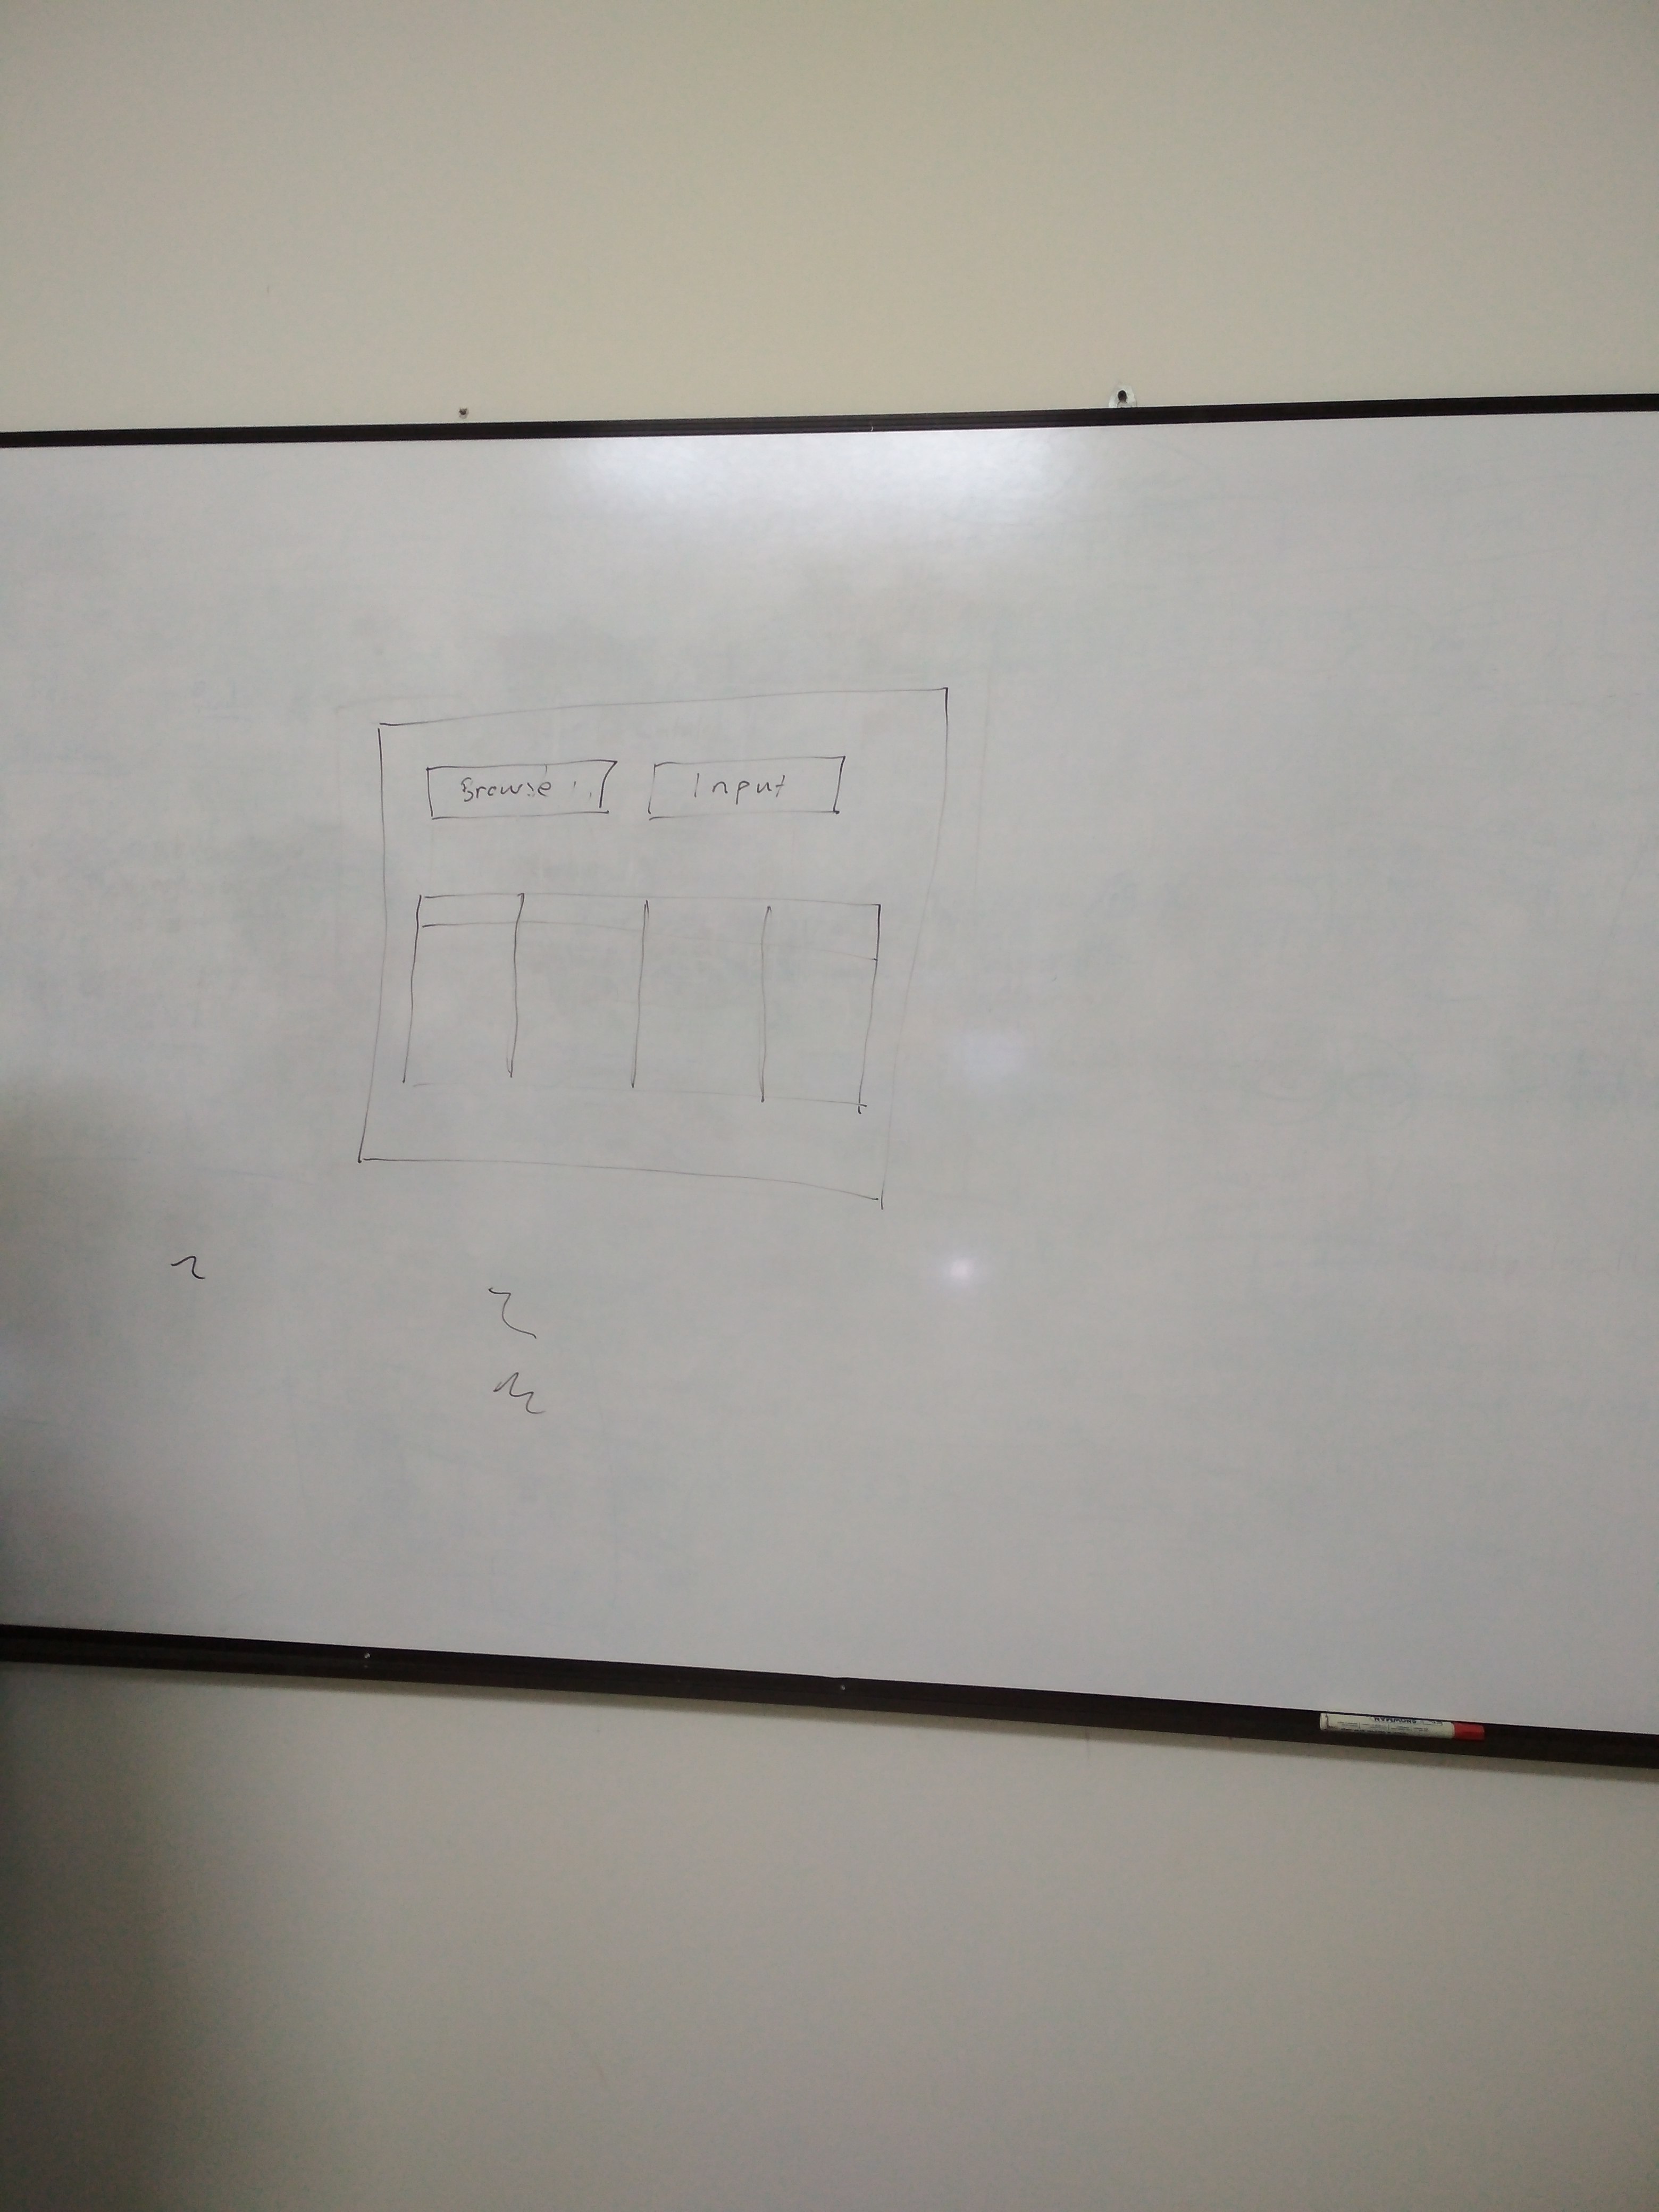 Browse ..
Input
SNOWMAN